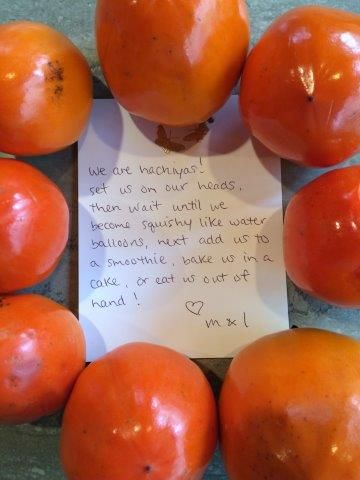 we are hachiyas!
set us on our heads,
then wait until we
become squishy like water
balloons, next add us to
a smoothie, bake us in a
cake, or eat us out of
hand!
♡
m & l